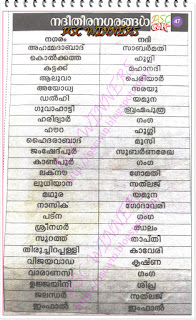 നദീതീരനഗരങ്ങൾ
PSC WINNERS
47
നഗരം നദി
അഹമ്മദാബാദ് സാബർമതി
കൊൽക്കത്ത ഹൂഗ്ലി
കട്ടക്ക് മഹാനദി
ആലുവാ പെരിയാർ
അയോധ്യ സരയു
ഡൽഹി യമുന
ഗുവാഹാട്ടി ബ്രഹ്മപുത്ര
ഹരിദ്വാർ ഗംഗ
ഹൗറ ഹൂഗ്ലി
ഹൈദരാബാദ് മുസി
ജംഷേദ്പൂർ സുബർണരേഖ
കാൺപൂർ ഗംഗ
ലക്നൗ ഗോമതി
ലുധിയാന സത്‌ലജ്
മഥുര യമുന
നാസിക് ഗോദാവരി
പട്ന ഗംഗ
ശ്രീനഗർ ഝലം
സൂററ്റ് താപ്തി
തിരുച്ചിറപ്പള്ളി കാവേരി
വിജയവാഡ കൃഷ്ണ
വാരാണസി ഗംഗ
ഉജ്ജയിനി ശിപ്ര
ജലന്ധർ സത്‌ലജ്
ഇംഫാൽ ഇംഫാൽ